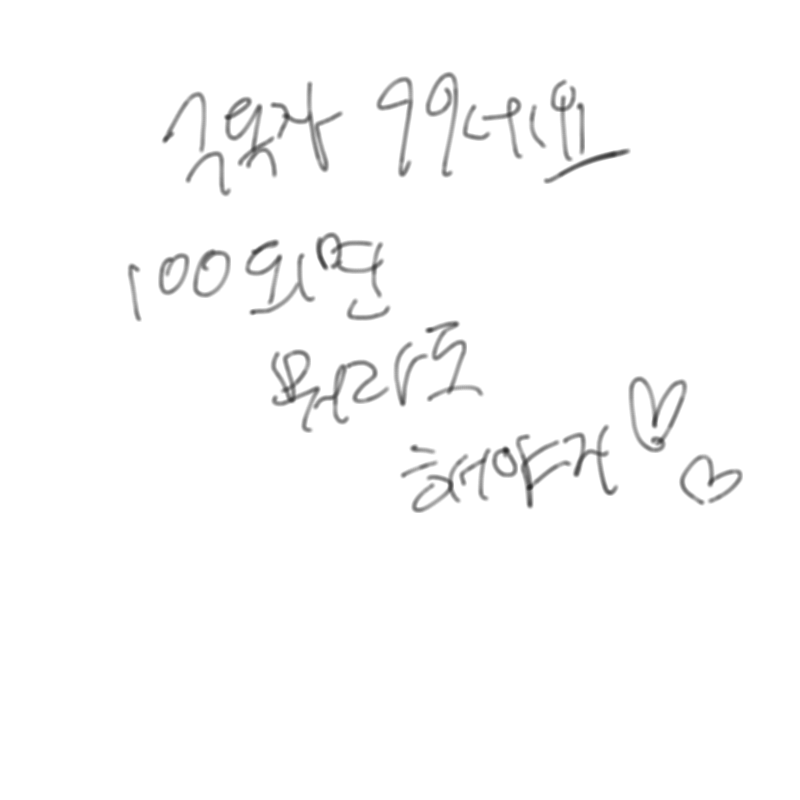 구독자 99네요
100되면
뭐라도
해야지 ♡
♡